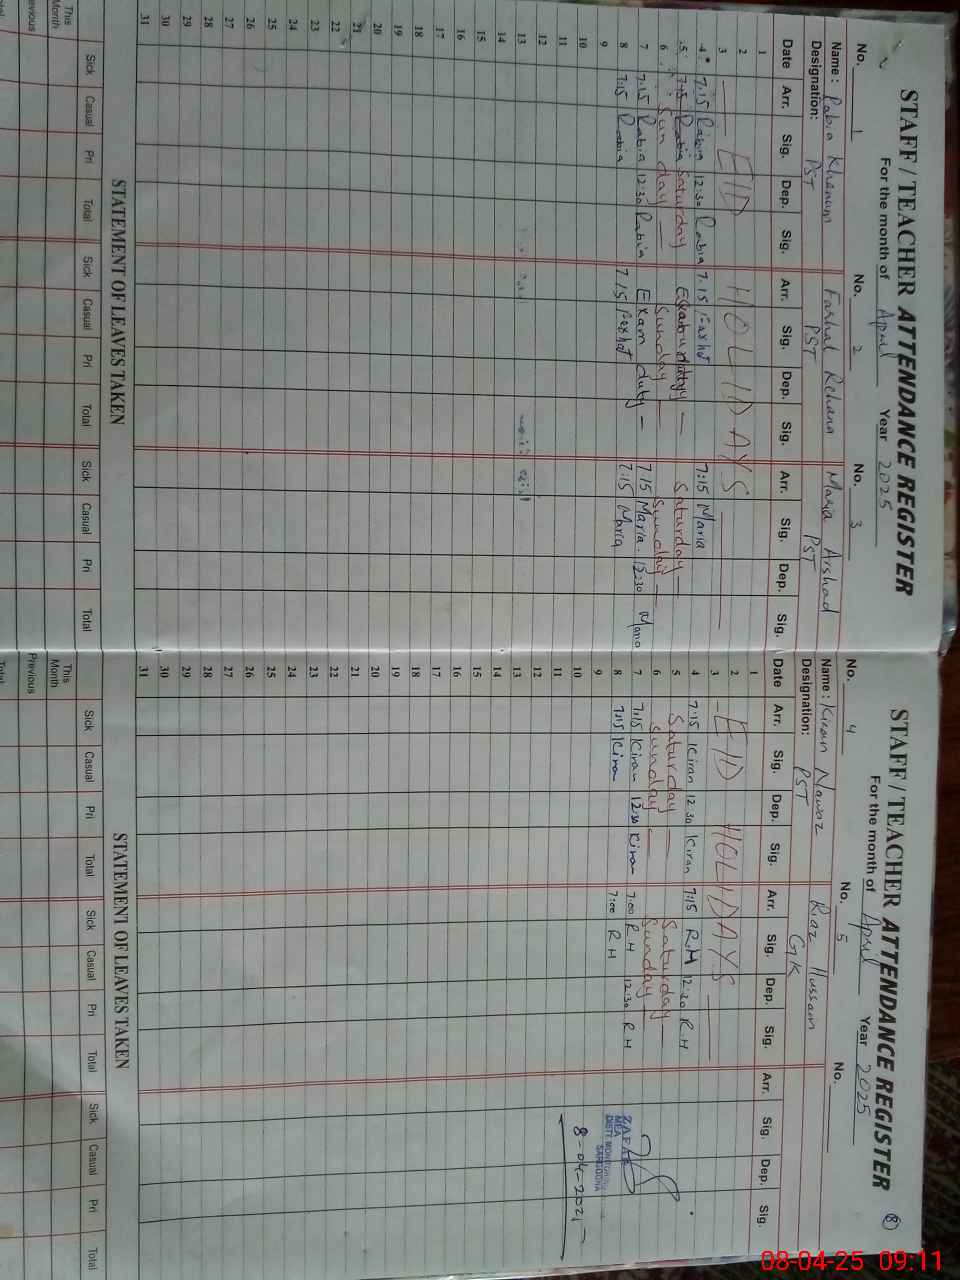 STAFF / TEACHER ATTENDANCE REGISTER
For the month of April Year 2025
No. 1 No. 2 No. 3
Name: Rabia Khanum Farhat Rehana Maria Arshad
Designation: PST PST PST
Date Arr. Sig. Dep. Sig. Arr. Sig. Dep. Sig. Arr. Sig. Dep. Sig.
1
2
3 EID HOLIDAYS
4 7:15 Rabia 12:30 Rabia 7:15 Farhat 7:15 Maria
5 7:15 Rabia Saturday Saturday
6 Sunday Sunday Sunday
7 7:15 Rabia 12:30 Rabia Exam duty 7:15 Maria 12:30 Maria
8 7:15 Rabia 7:15 Farhat 7:15 Maria
9
10
11
12
13
14
15
16
17
18
19
20
21
22
23
24
25
26
27
28
29
30
31
STATEMENT OF LEAVES TAKEN
Sick Casual Pri Total Sick Casual Pri Total Sick Casual Pri Total
This Month
Previous
Total
STAFF / TEACHER ATTENDANCE REGISTER 8
For the month of April Year 2025
No. 4 No. 5 No.
Name: Kiran Nawaz Riaz Hussain
Designation: PST G/K
Date Arr. Sig. Dep. Sig. Arr. Sig. Dep. Sig. Arr. Sig. Dep. Sig.
1
2
3 EID HOLIDAYS
4 7:15 Kiran 12:30 Kiran 7:15 R.H 12:30 R.H
5 Saturday Saturday
6 Sunday Sunday
7 7:15 Kiran 12:30 Kiran 7:00 R H 12:30 R H
8 7:15 Kiran 7:00 R H
9
10
11
12
13
14
15
16
17
18
19
20
21
22
23
24
25
26
27
28
29
30
31
ZAFAR
MEA
DISTT MONITORING
SARGODHA
8-04-2025
STATEMENT OF LEAVES TAKEN
Sick Casual Pri Total Sick Casual Pri Total Sick Casual Pri Total
This Month
Previous
Total
08-04-25 09:11